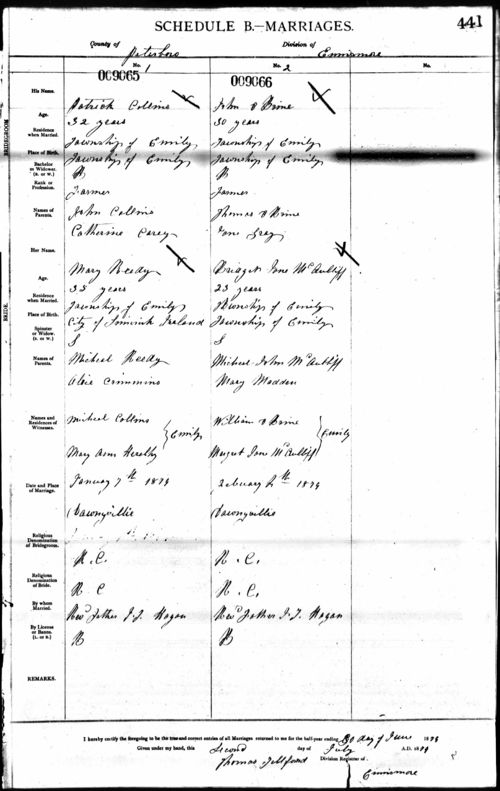 441
SCHEDULE B.—MARRIAGES.
County of Peterboro Division of Ennismore
No. 1 No. 2 No.
009065 009066
BRIDEGROOM.
His Name. Patrick Collins John O Brine
Age. 32 years 30 years
Residence when Married. Township of Emily Township of Emily
Place of Birth. Township of Emily Township of Emily
Bachelor or Widower. (B. or W.) B B
Rank or Profession. Farmer Farmer
Names of Parents. John Collins Thomas O Brine
Catherine Carey Jane Gray
BRIDE.
Her Name. Mary Reedy Bridget Jane McAuliff
Age. 35 years 23 years
Residence when Married. Township of Emily Township of Emily
Place of Birth. City of Limirick Ireland Township of Emily
Spinster or Widow. (S. or W.) S S
Names of Parents. Micheal Reedy Micheal John McAuliff
Alice Crimmins Mary Madden
Names and Residences of Witnesses. Micheal Collins William O Brine
Emily Emily
Mary Ann Margret Jane McAuliff
Date and Place of Marriage. January 7th 1879 February 4th 1879
Downyville Downyville
Religious Denomination of Bridegroom. R. C. R. C.
Religious Denomination of Bride. R C R. C.
By whom Married. Revd Father J. J. Hogan Revd Father J. J. Hogan
By License or Banns. (L. or B.) B B
REMARKS.
I hereby certify the foregoing to be the true and correct entries of all Marriages returned to me for the half-year ending 30 day of June 1879
Given under my hand, this Second day of July A.D. 1879
Thomas Division Registrar of
Ennismore